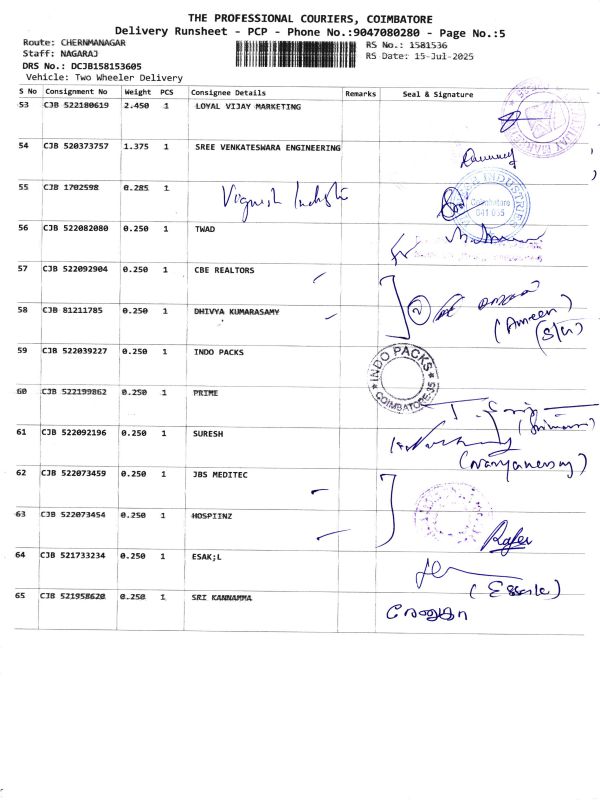 THE PROFESSIONAL COURIERS, COIMBATORE
Delivery Runsheet - PCP - Phone No.:9047080280 - Page No.:5
Route: CHERNMANAGAR
RS No.: 1581536
Staff: NAGARAJ
RS Date: 15-Jul-2025
DRS No.: DCJB158153605
Vehicle: Two Wheeler Delivery
S No Consignment No Weight PCS Consignee Details Remarks Seal & Signature
53 CJB 522180619 2.450 1 LOYAL VIJAY MARKETING
54 CJB 520373757 1.375 1 SREE VENKATESWARA ENGINEERING
55 CJB 1702598 0.285 1 Vignesh
INDUSTRIES
Coimbatore
641 035
56 CJB 522082080 0.250 1 TWAD
57 CJB 522092904 0.250 1 CBE REALTORS
58 CJB 81211785 0.250 1 DHIVYA KUMARASAMY
(Ameen)
59 CJB 522039227 0.250 1 INDO PACKS
INDO PACKS
COIMBATORE-35
60 CJB 522199862 0.250 1 PRIME
61 CJB 522092196 0.250 1 SURESH
62 CJB 522073459 0.250 1 JBS MEDITEC
63 CJB 522073454 0.250 1 HOSPIINZ
64 CJB 521733234 0.250 1 ESAK;L
65 CJB 521958620 0.250 1 SRI KANNAMMA